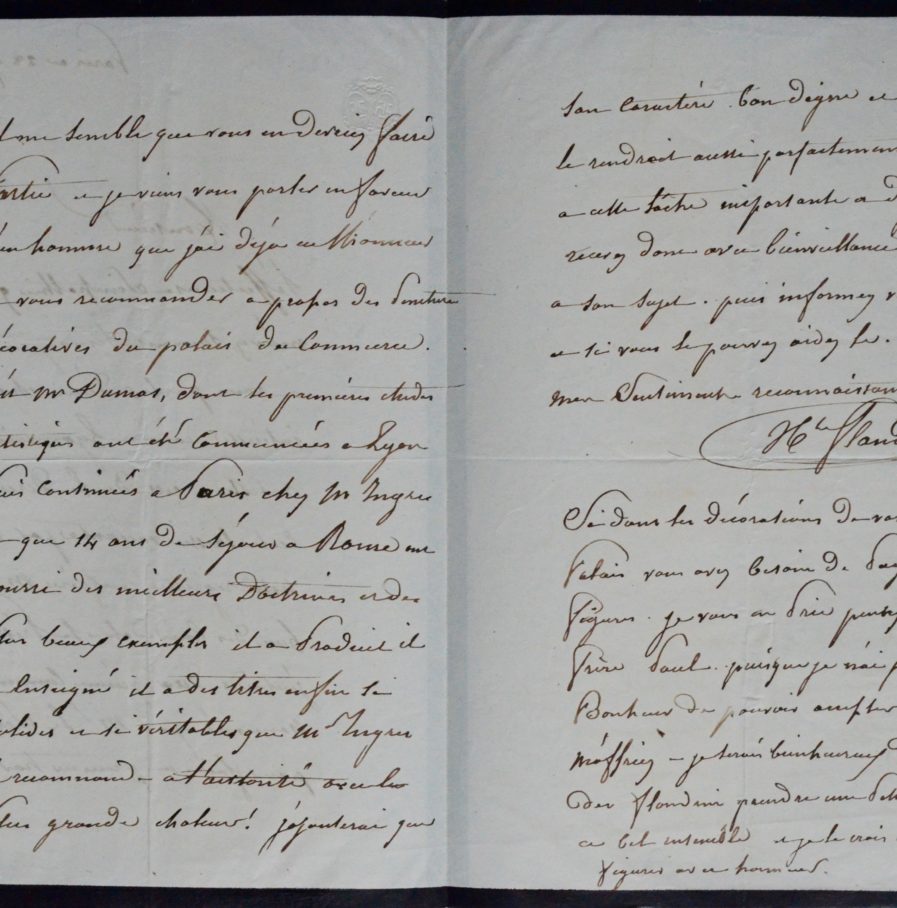 me semble que vous en devriez faire
partie et je viens vous parler en faveur
homme que j'ai déja eu l'honneur
vous recommander a propos des Peintures
décoratives du palais du Commerce.
Mr Dumas, dont les premières études
artistiques ont été commencées a Lyon
puis continuées a Paris chez Mr Ingres
que 14 ans de séjour a Rome ont
nourri des meilleures Doctrines et des
plus beaux exemples il a Produit il
Enseigné il a des titres enfin si
solides et si véritables que Mr Ingres
recommande a l'autorité avec la
Plus grande chaleur! j'ajouterai que
son caractère bon digne et
le rendroit aussi parfaitement
a cette tâche importante a
recevez donc avec bienveillance
a son sujet. puis informez
et si vous le pouvez aidez le.
mes Sentiments reconnaissan
Hte Fland
Si dans les décorations de vo
Palais vous avez besoin de
figures. je vous en Prie pens
frère Paul. puisque je n'ai p
Bonheur de pouvoir accepter
m'offriez - je serais bienheureux
des flandrin prendre une
ce bel ensemble et je le crois
figurer avec honneur.